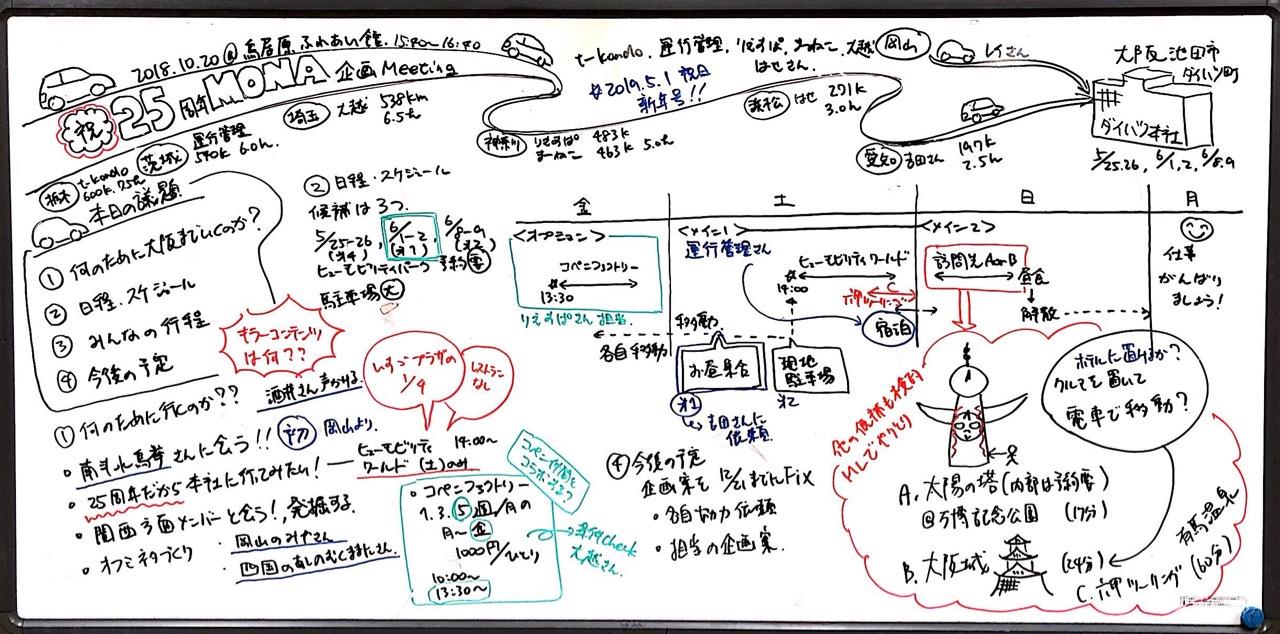 2018.10.20 @ 鳥居原ふれあい館. 15:40〜16:40
祝 25周年 MONA 企画 Meeting
t-kondo. 運行管理. りえすぱ. まーねこ. 大越
はせさん.
2019.5.1 祝日
新年号!!
栃木 t-kondo
600k. 7.5h
茨城 運行管理
590k 6.0h.
埼玉 大越 538km
6.5h
神奈川 りえすぱ 483k
まーねこ 463k 5.0h
浜松 はせ 291k
3.0h
愛知 吉田さん 197k
2.5h
岡山
大阪池田市
ダイハツ町
ダイハツ本社
5/25.26, 6/1,2, 6/8.9
本日の議題
① 何のために大阪まで行くのか?
② 日程・スケジュール
③ みんなの行程
④ 今後の予定
キラーコンテンツ
は何??
① 何のために行くのか??
酒井さん声かける
岡山より.
さんに会う!!
・25周年だから本社に行ってみたい!
ヒューモビリティ
ワールド (土)のみ
14:00〜
・関西方面メンバーと会う!, 発掘する.
・オフミネタづくり
・岡山のみやさん
② 日程・スケジュール
候補は3つ
5/25-26, 6/1-2, 6/8-9
ヒューモビリティパーク 予約要
駐車場 大
いすゞプラザの
1/4
レストラン
なし
・コペンファクトリー
1.3.5週/月の
月〜金
1000円/ひとり
10:00〜
13:30〜
コペン仲間と
コラボする?
check
大越さん.
金
土
日
月
<オプション>
コペンファクトリー
13:30
りえすぱさん担当.
各自移動
<メイン1>
運行管理さん
ヒューモビリティワールド
14:00
C
宿泊
移動
お昼集合
現地
駐車場
吉田さんに
依頼
<メイン2>
訪問先 A or B
昼食
解散
仕事
がんばり
ましょう!
他の候補も検討
MLでやりとり
ホテルに置けるか?
クルマを置いて
電車で移動?
A. 太陽の塔 (内部は予約要)
@万博記念公園 (17分)
B. 大阪城 (24分)
C. 六甲ツーリング
有馬温泉
(60分)
④ 今後の予定
企画案を 12/21までにFix
・各自協力依頼
・担当の企画案.